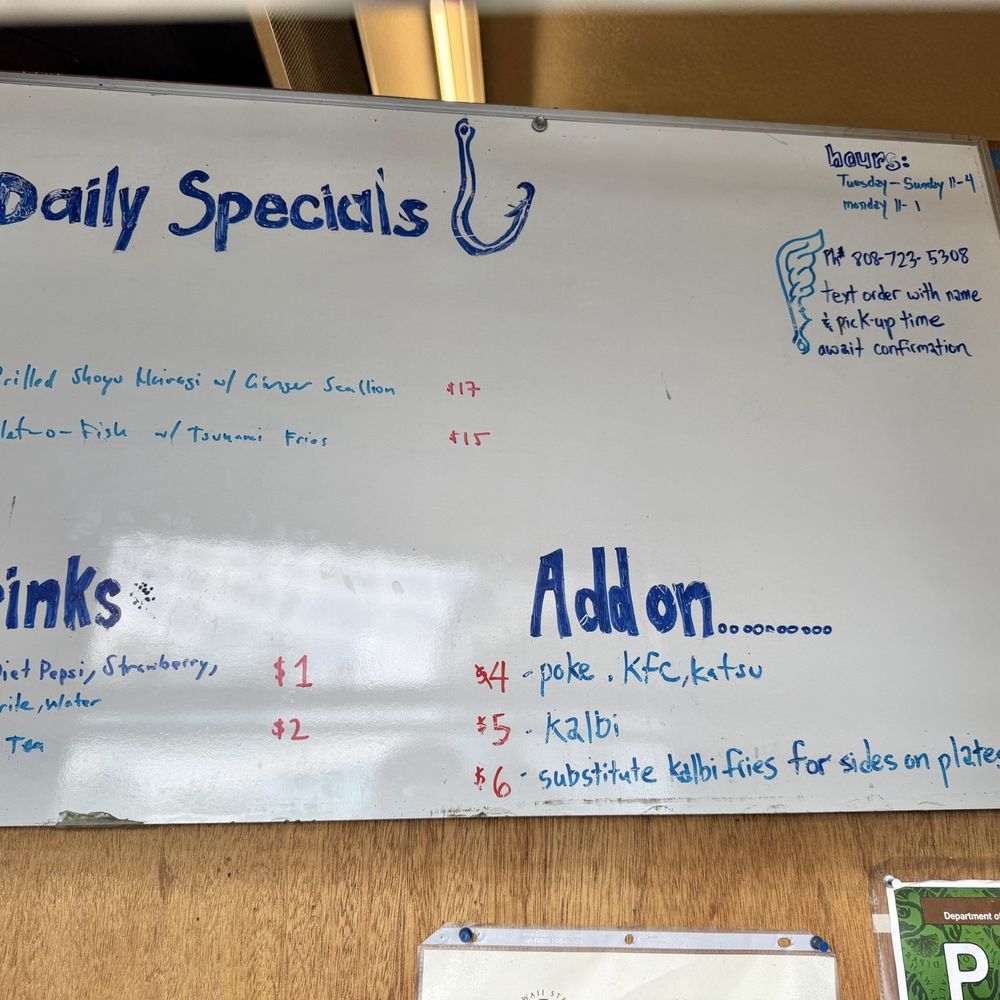 Daily Specials
hours:
Tuesday - Sunday 11-4
monday 11-1
Ph# 808-723-5308
text order with name
& pick-up time
await confirmation
rilled Shoyu Nairagi w/ Ginger Scallion $17
let-o-Fish w/ Tsunami Fries $15
inks
Add on..........
Diet Pepsi, Strawberry, $1
rite, Water
Tea $2
$4 - poke, KFC, katsu
$5 - Kalbi
$6 - substitute kalbi fries for sides on plates
Department o
P